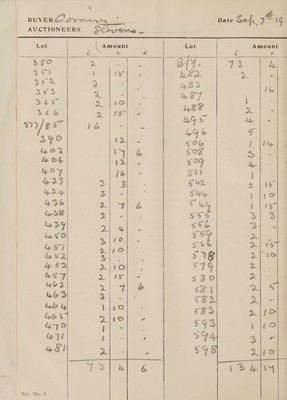 BUYER Comini
Date Sep. 7th 19
AUCTIONEERS Stevens
Lot Amount £ s d
350 2 - -
351 1 15 -
352 3 - -
353 2 - -
365 2 10 -
366 2 15 -
377/85 16 - -
390 12 -
403 17 6
406 12 -
407 16 -
423 3 3 -
424 3 - -
436 2 7 6
438 2 - -
439 2 4 -
450 3 10 -
451 2 10 -
452 3 - -
453 2 10 -
457 2 15 -
462 2 7 6
463 3 - -
464 1 10 -
465 2 10 -
470 1 - -
471 1 - -
481 2 - -
73 4 6
Lot Amount £ s
B/f. 73 4
482 2 -
483 16
487 1 -
488 2 -
495 4 -
496 5
506 1 14
508 3 -
509 4
511 1
542 2 15
544 1 10
549 1 15
555 3 3
556 3 -
559 2
566 2 15
578 2 10
579 2 -
580 2 -
581 2 5
582 2 -
583 2 10
593 1 10
594 3 -
598 2 10
134 17